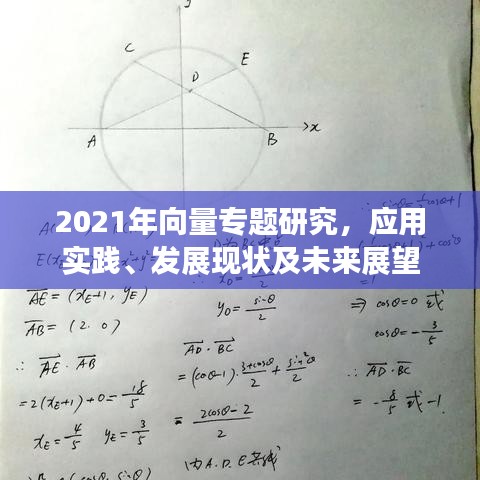 y
C
E
D
A
B
x
2021年向量专题研究，应用
实践、发展现状及未来展望
AE = (xE+1, yE)
AB = (2.0)
∴ AE · AB
= 2(xE+1)+0 = 18/5
xE = 4/5 yE = 3/5
yD = sinθ/2
AD · BC
= (cosθ-1) · (3+cosθ)/2 + sin²θ/2
= (2cosθ-2)/2
⇒ cosθ=0 或
cosθ= -3/5
∴ AD · BC
= -8/5 或 -1